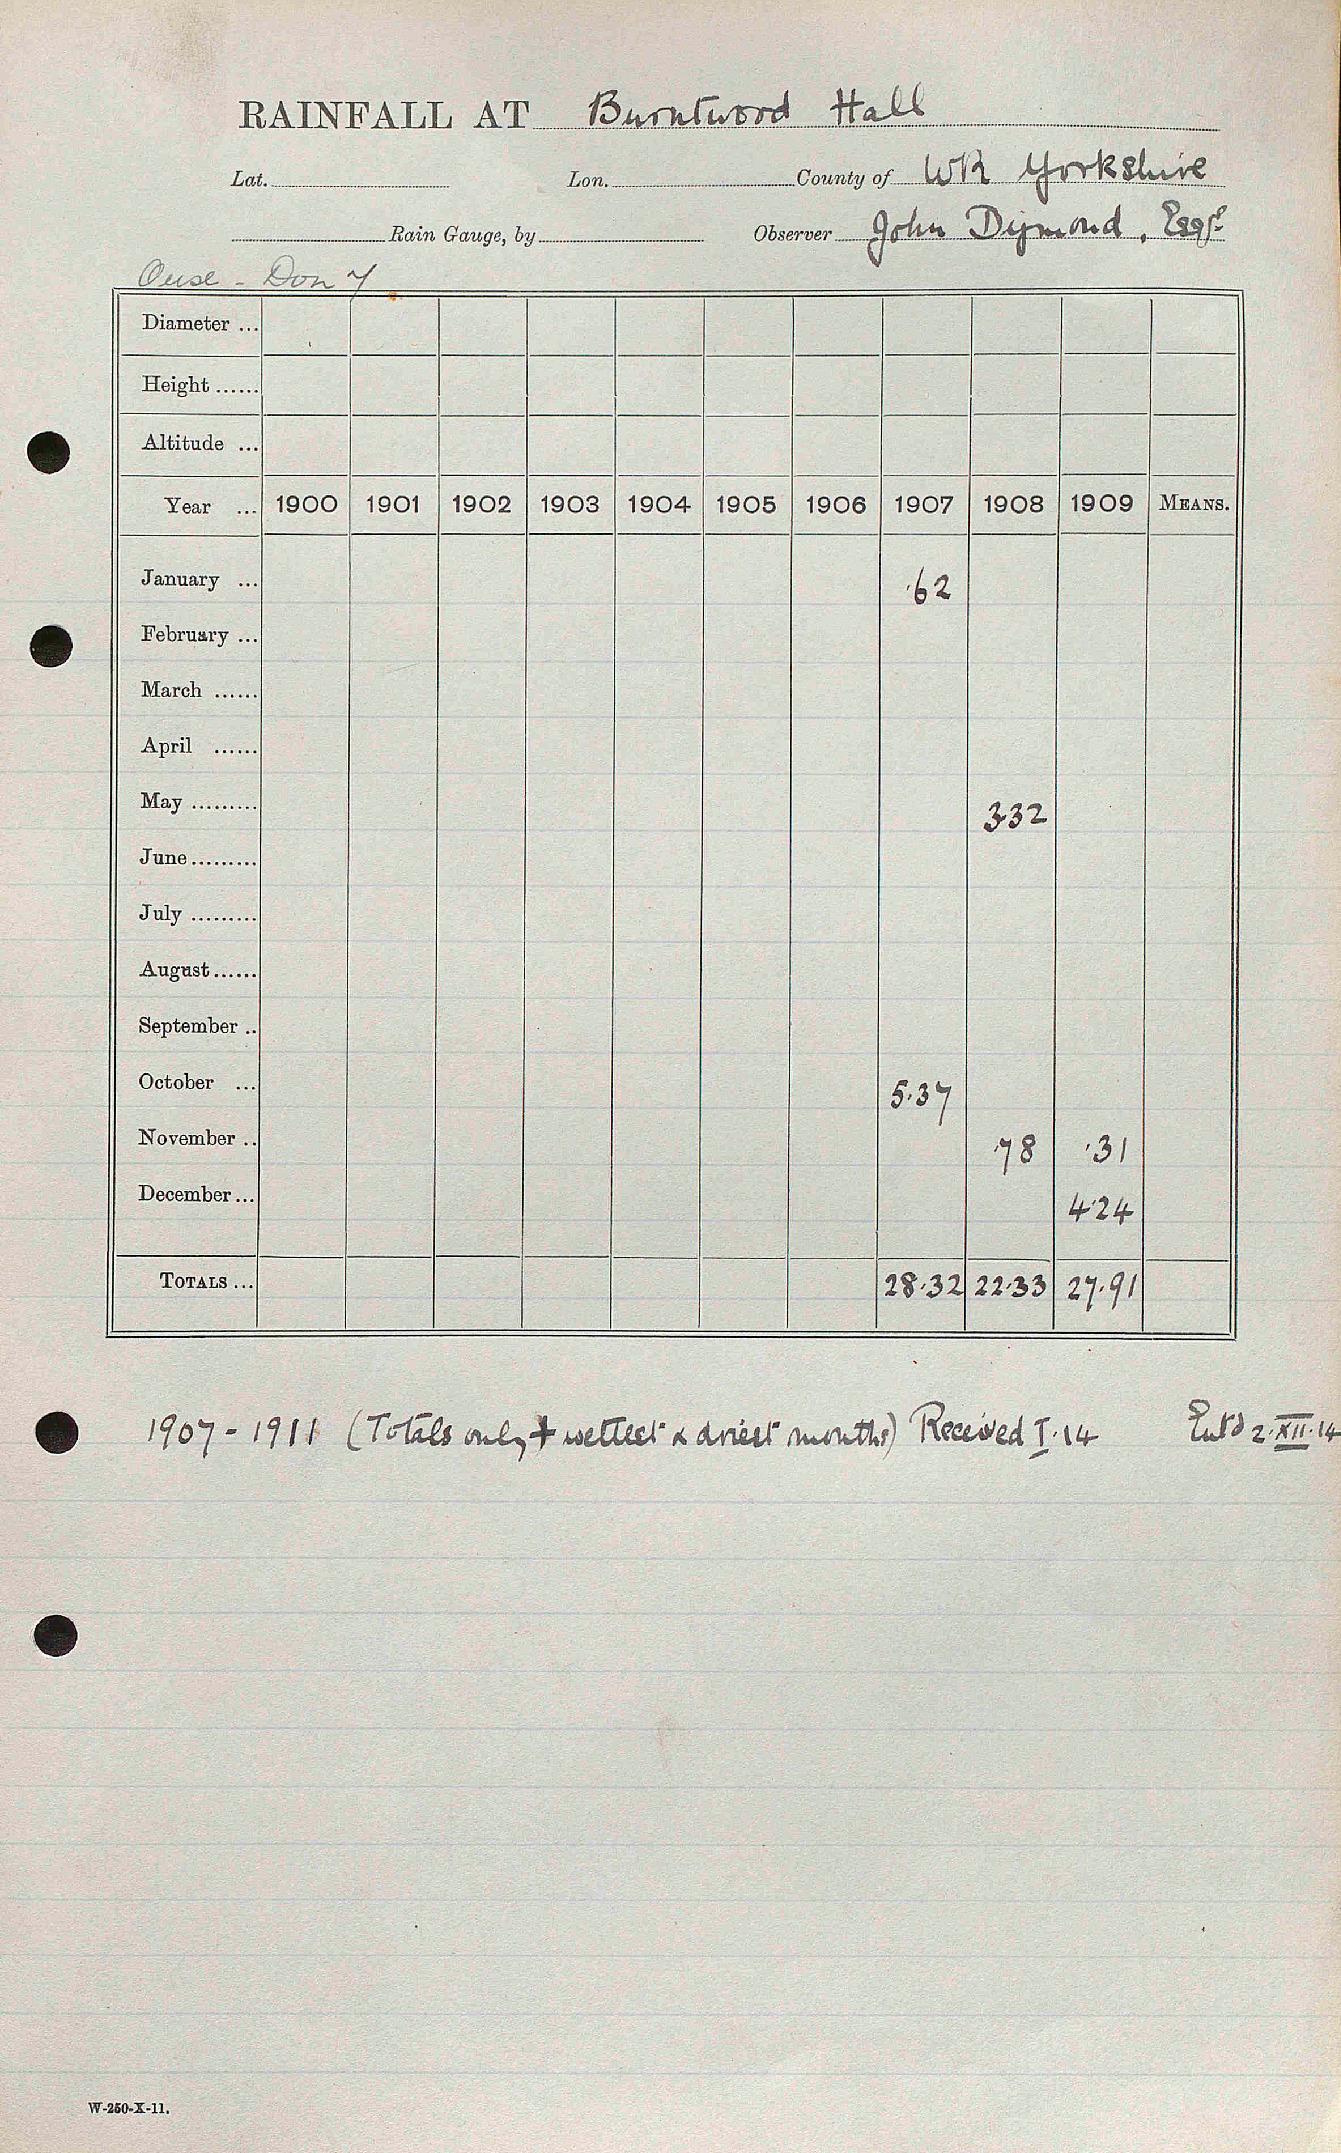 RAINFALL AT Burntwood Hall
Lat. Lon. County of WR Yorkshire
Rain Gauge, by Observer John Dymond, Esqre
Ouse - Don 7
Diameter ...
Height ......
Altitude ...
Year ... 1900 1901 1902 1903 1904 1905 1906 1907 1908 1909 MEANS.
January ... ·62
February ...
March ......
April ......
May ......... 3·32
June .........
July .........
August ......
September ..
October ... 5·37
November .. ·78 ·31
December ... 4·24
TOTALS ... 28·32 22·33 27·91
1907 - 1911 (Totals only + wettest & driest months) Received I·14 Entd 2·XII·14
W-250-X-11.